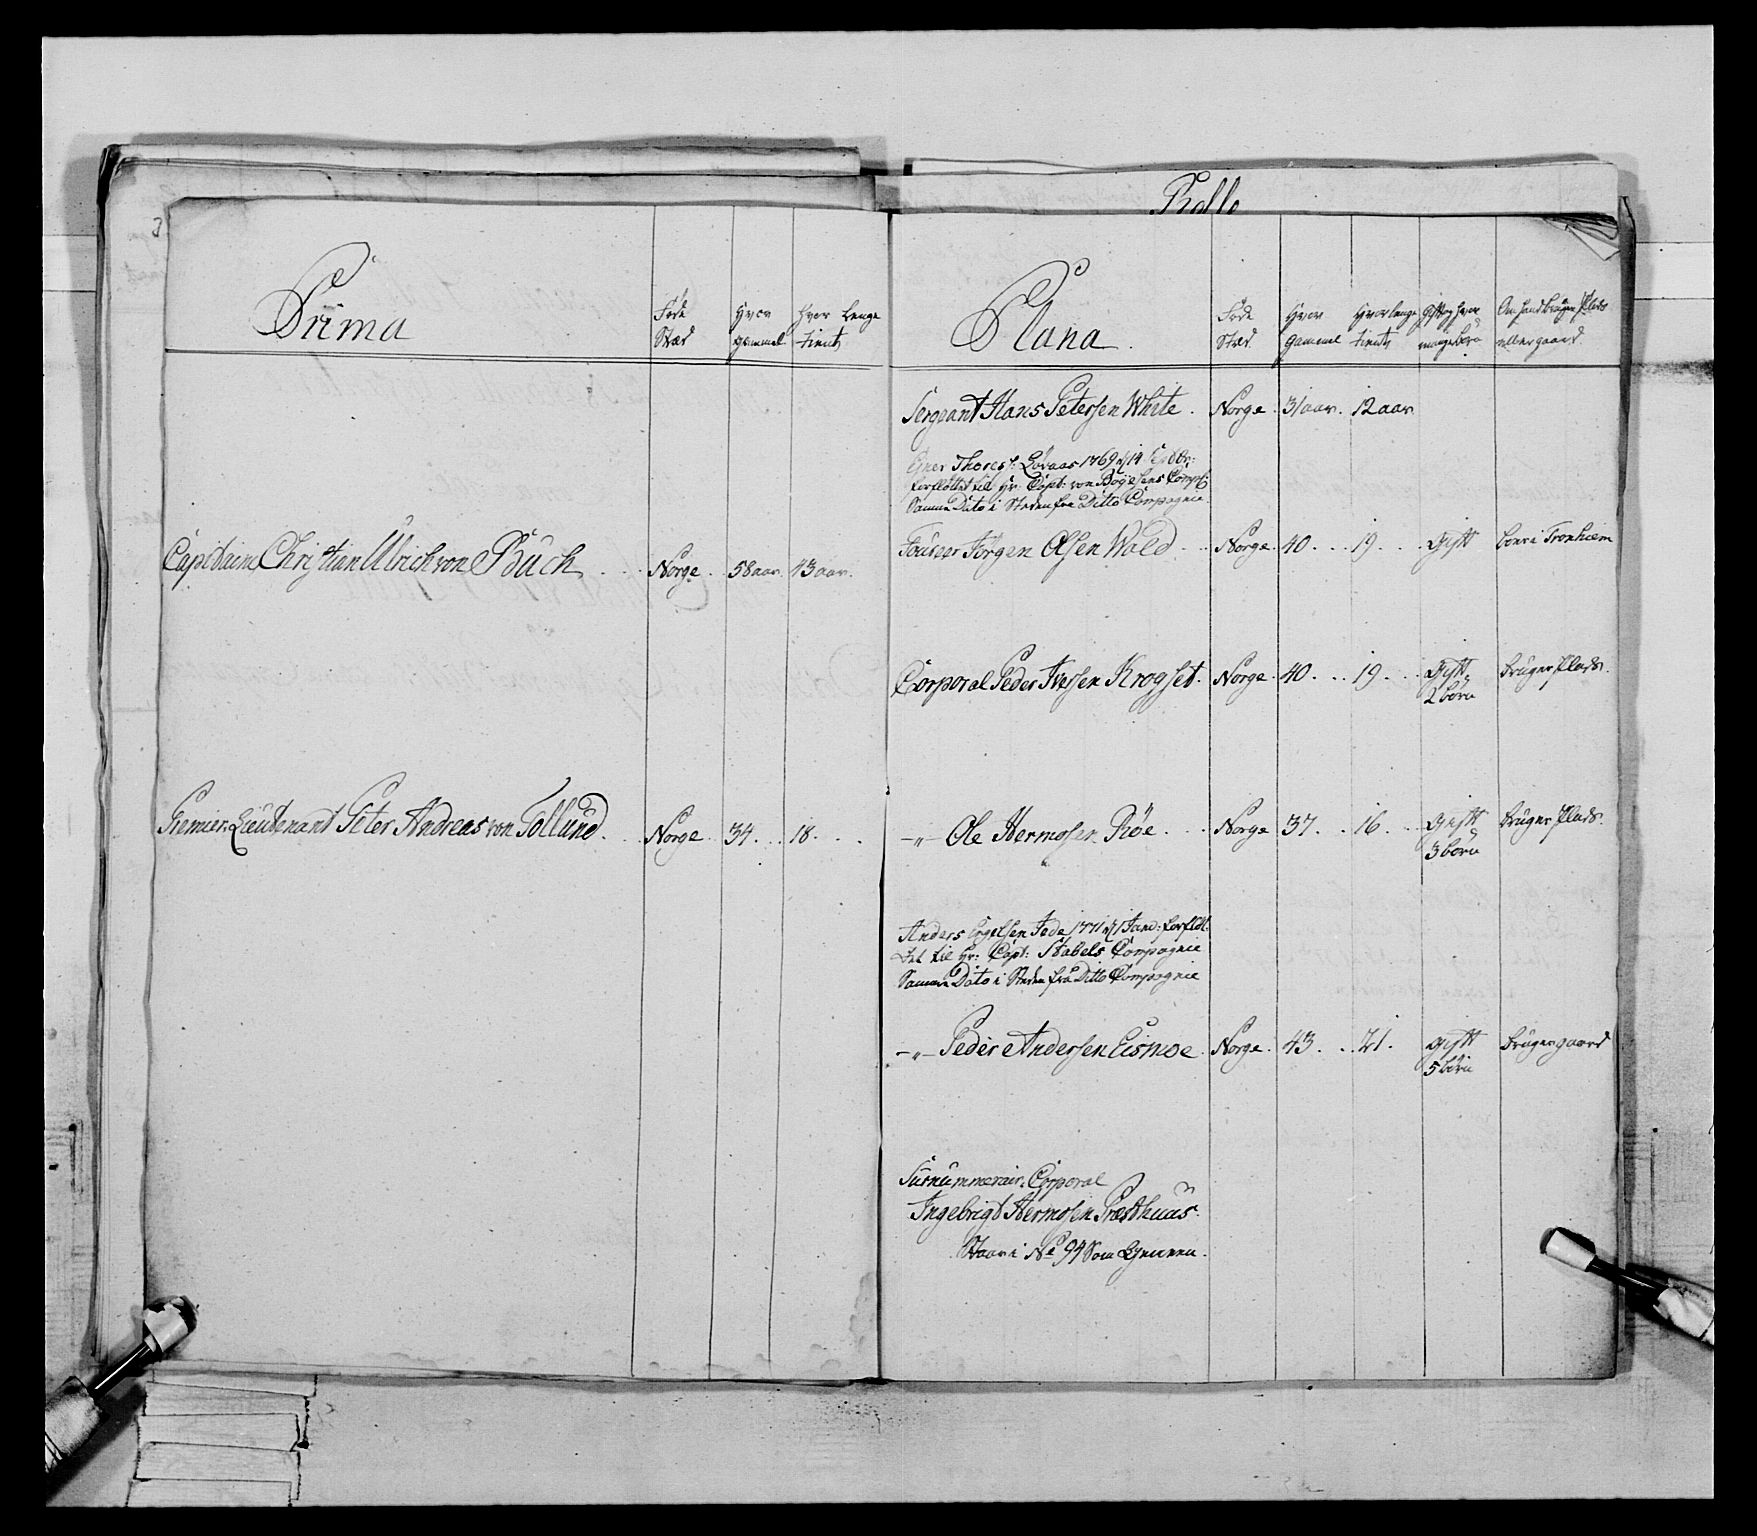 Rolle
Prima
Føde Stæd
Hvor gammel
Hvor Lenge tient
Capitaine Christian Ulrich von Buch . . Norge . . 58 aar . 43 aar .
Premier Lieutenant Peter Andreas von Tollund . . Norge . 34 . . . 18 . . .
Plana
Føde Stæd
Hvor gammel
Hvor lenge tient
Gift og hvor mange børn
Om hand bruger Plads eller gaard
Sergeant Hans Petersen White . Norge . 31 aar . 12 aar
Ener Thoress: Løvaas 1769 14
forfløttet til Hr: Capt: von Bøyesens Comp:
Samme Dato i Steden fra Ditto Compagnie
Foureer Jørgen Olsen Wold . . Norge . 40 . . . 19 . . . gift boer i Tronhiem
Corporal Peder Iversen Krogset . Norge . 40 . . . 19 . . . gift 2 børn bruger Plads .
-„- Ole Hermosen Røe . . . Norge 37 . . 16 . . . gift 3 børn bruger Plads .
Anders Engelsen Fede 1771 1 Janv: forflöt:
tet til Hr: Capt: Stabels Compagnie
Samme Dato i Steden fra Ditto Compagnie
-„- Peder Andersen Eismoe . Norge . 43 . . . 21 . gift 5 børn bruger gaard
Surnummerair: Corporal
Ingebrigt Hermosen Præsthuus .
Staar i No 94 Som Gemeen .